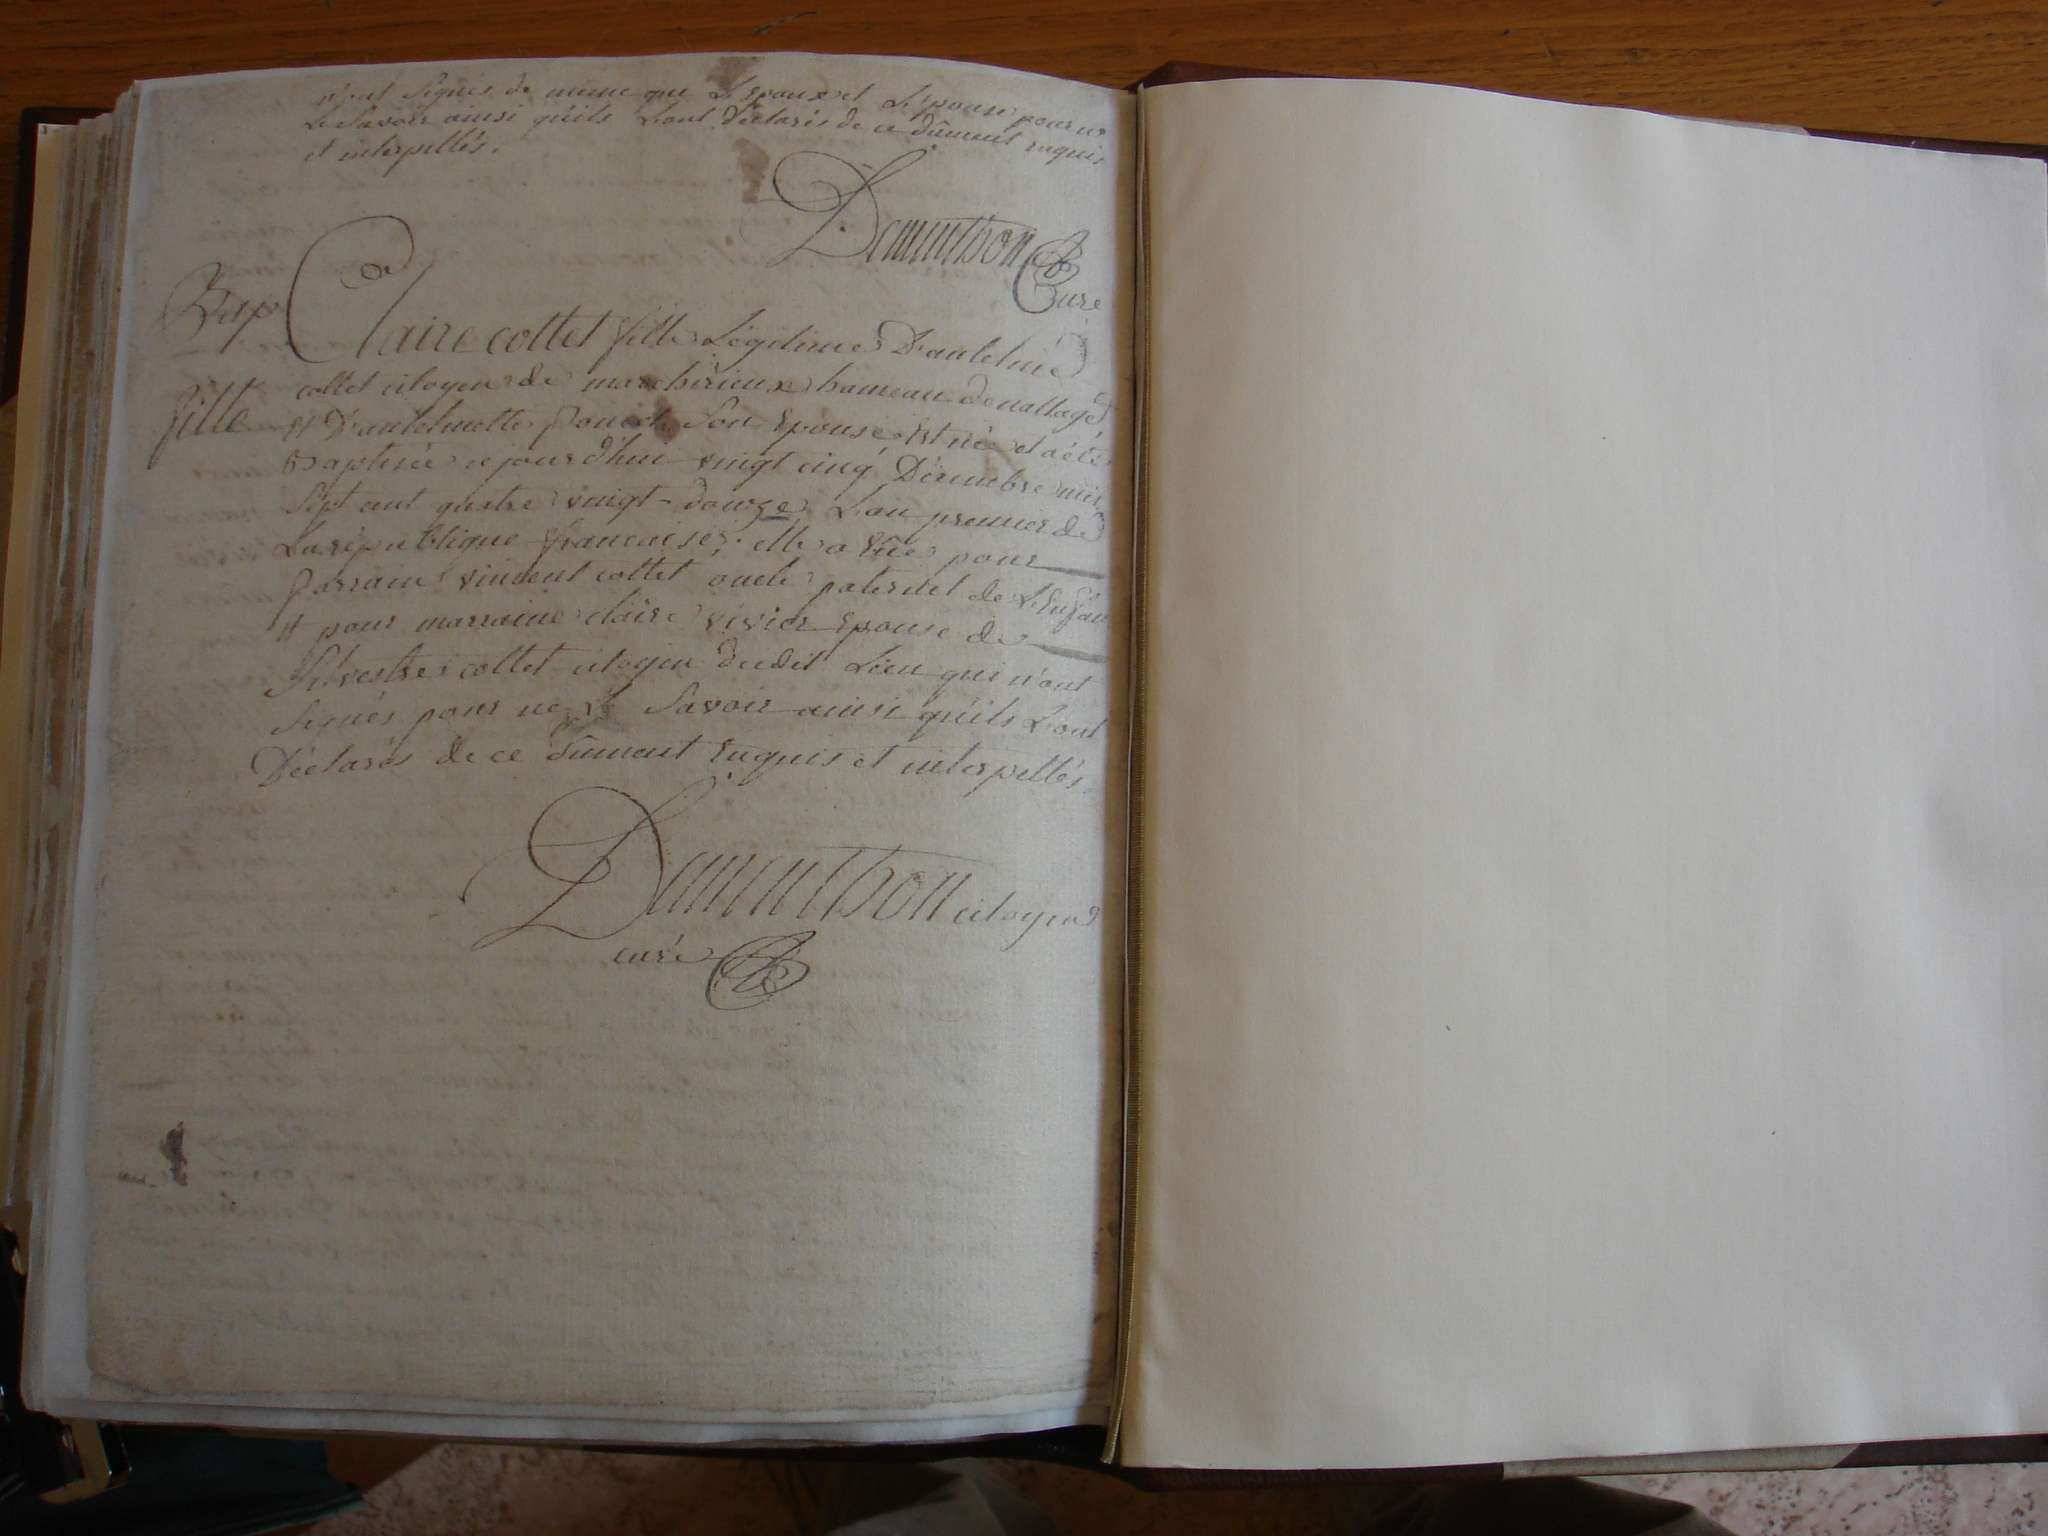 n'ont signés de meme que L'Epoux et L'épouse pour ne
Le Savoir ainsi qu'ils L'ont Déclarés de ce dûment enquis
et interpellés.
Demurthon
Curé
Bap
Claire collet fille Légitime D'antelme
fille
collet citoyen de marchirieux hameau de nattage
Et D'antelmette Son Epouse Est né et a été
Baptisée cejourd'hui vingt cinq Décembre mil
Sept cent quatre vingt-douze L'an premier de
La république francaise; elle a Eüe pour
parrain vincent collet oncle paternel de L'Enfant
Et pour marraine claire vivier Epouse de
Silvestre collet citoyen dudit Lieu qui n'ont
Signés pour ne Le Savoir ainsi qu'ils L'ont
Déclarés de ce dûment Enquis et interpellés.
Demurthon citoyen
curé